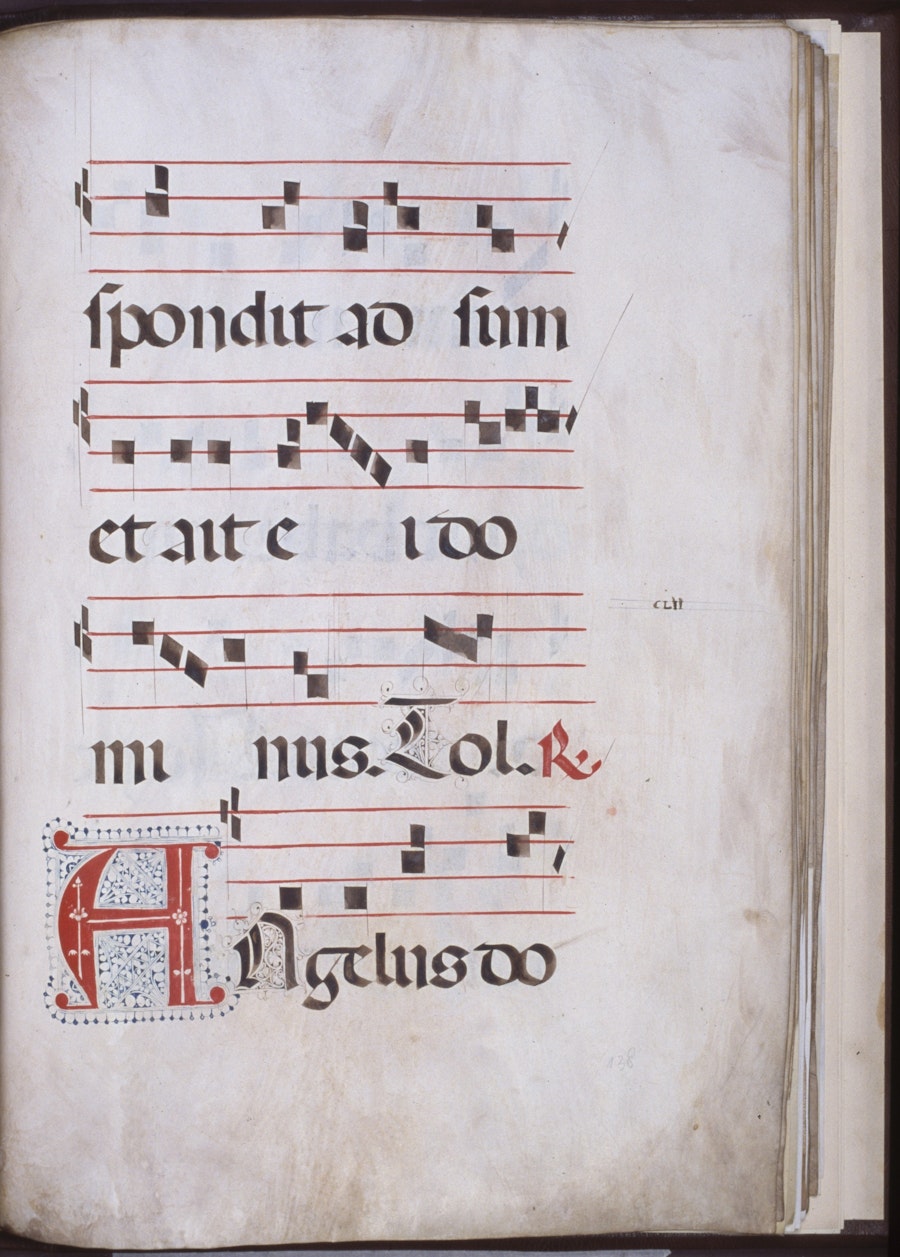 spondit ad sum
et ait e i do
mi nus. Tol. R.
CLII
Angelus do
138